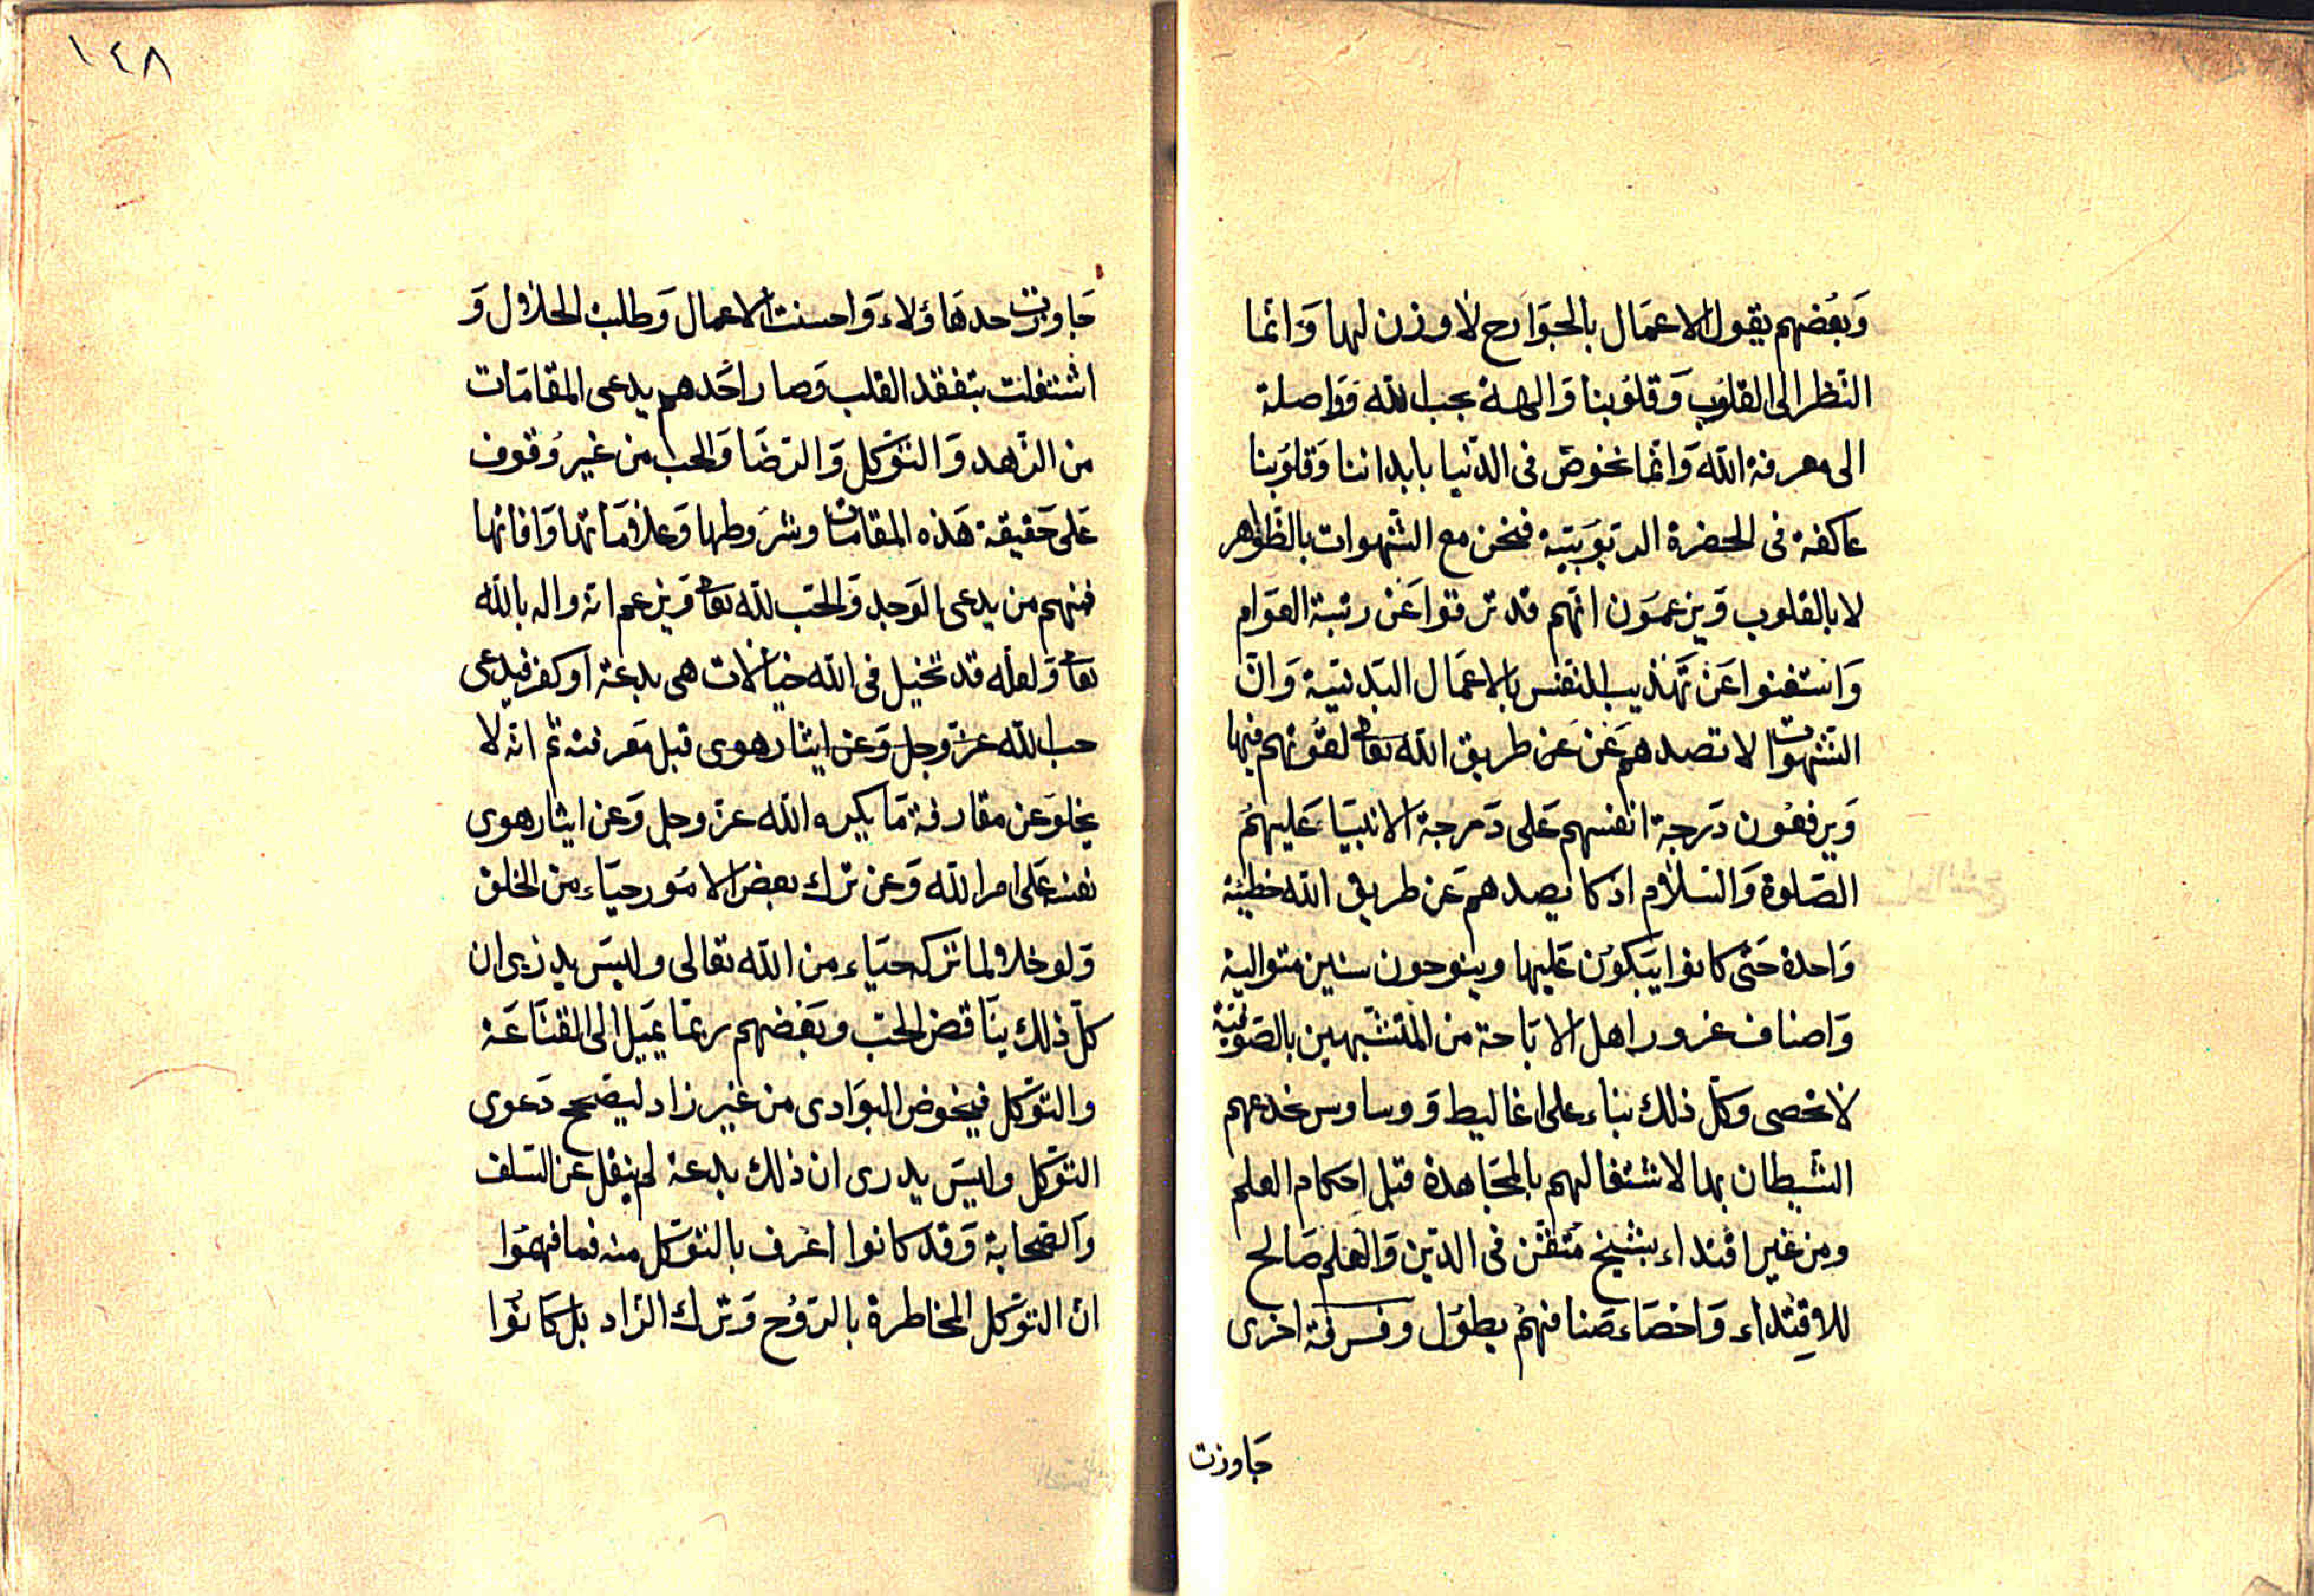 وَبَعْضهم يقول الاعمَال بالجوَارح لا وزن لها وَانما
النّظر الى القلُوب وَقلوُبنا وَالهة بحب الله وَوَاصلة
الى معرفة الله وَانما نخوض فى الدّنيا بابداننا وَقلوُبنا
عاكفة فى الحضرة الربوُبيّة فنحن مع الشّهوات بالظّواهر
لا بالقلوب وَيزعمَون انّهم قد ترقوا عَن رتبة العوَام
وَاستغنوا عَن تَهذيب النفس بالاعمَال البَدنيّة وَانّ
الشّهوات لا تصدهم عَن عَن طريق الله تعا لقوّتهم فيها
وَيرفعُون دَرجة انفسهم عَلى دَرجة الانبيَاء عَليهمُ
الصّلوة وَالسّلام اذ كا يصدهم عَن طريق الله خطيئة
وَاحدة حَتى كانوا يَبكوُن عَليها وينوحون سنين متوالية
وَاصناف غرور اهل الابَاحة من المتشّبهين بالصّوفيّة
لا تحصى وَكلّ ذلك بناء على اغاليط وَوساوس خدعهم
الشّيطان بها لاشتغالهم بالمجَاهدة قبل احكام العلم
ومن غير اقتداء بشيخ مُتقن فى الدّين وَالعلم صَالح
للاقِتداء وَاحصَاء صَنافهمُ يطوُل وفرقة اخرى
جَاوزت
١٤٨
جَاوزت حد هَاؤلاء وَاحسنت الاعمال وَطلبت الحلال وَ
اشتغلت بتفقد القلب وَصار احَدهم يدعى المقامَات
من الزّهد وَالتّوَكل وَالرّضَا وَالحب من غير وُقوف
عَلى حَقيقة هَذه المقامات وشرُوطها وَعلامَاتها وَافاتها
فمنهم من يدعى الوَجد وَالحّب لله تعا وَيزعم انه واله بالله
تعا وَلعلّه قد تخيل فى الله خيَالات هى بدعة اَو كفر فيدعى
حب الله عزّ وجل وَعن ايثار هوى قبل مَعرفته ثم انّه لا
يخلو عَن مقارفة مَا يكره الله عزّ وجل وَعن ايثار هوى
نفسه عَلى امر الله وَعن ترك بعض الامَور حيَاء من الخلق
وَلو خلا لما تركه حيَاء من الله تعالى وليسَ يدرى ان
كلّ ذلك ينَاقض الحبّ وبَعَضهم ربمَا يَميل الى القنَاعَة
والتّوَكل فيخوض البوَادى من غير زاد ليصّحح دَعوى
التّوَكل وليسَ يدرى ان ذلك بدعة لم ينقل عَن السّلف
وَالصّحابة وَقد كانوا اعَرف بالتّوَكل منه فما فهمَوا
انّ التّوَكل المخاطرة بالرّوُح وَترك الزّاد بل كَانوُا